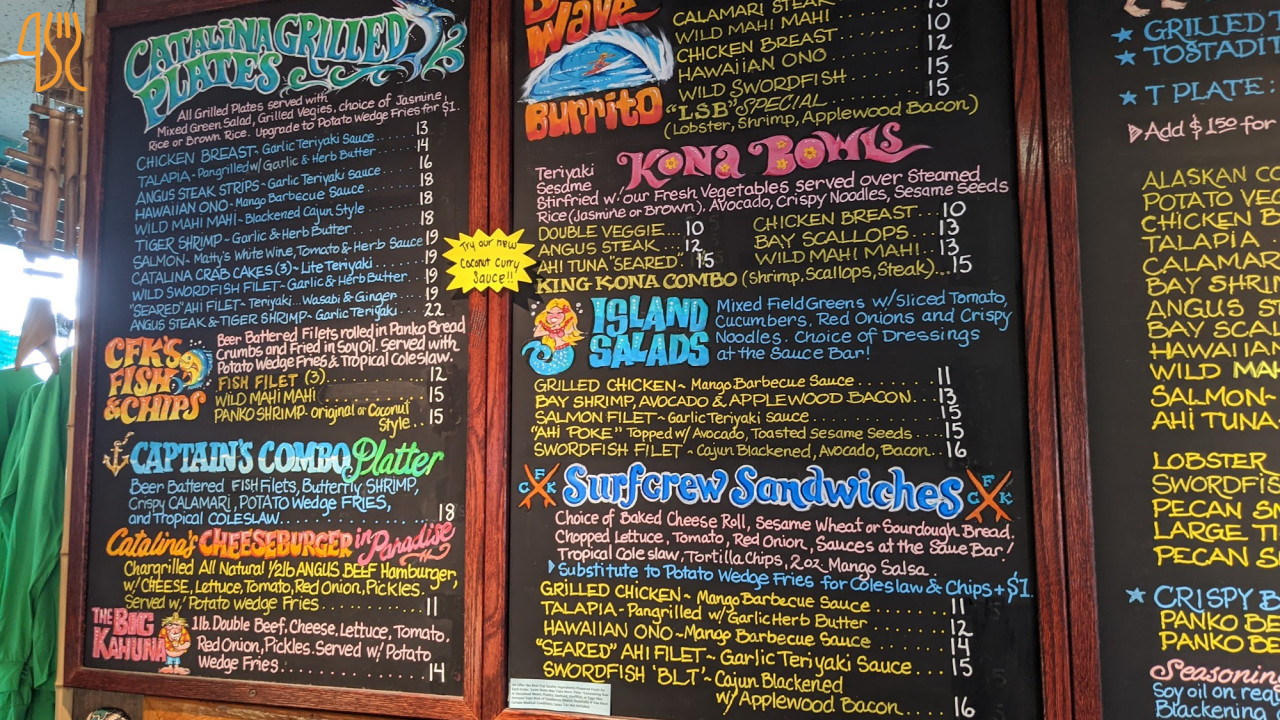 CATALINA GRILLED
PLATES
All Grilled Plates served with
Mixed Green Salad, Grilled Vegies, choice of Jasmine
Rice or Brown Rice. Upgrade to Potato Wedge Fries for $1.
CHICKEN BREAST~Garlic Teriyaki Sauce 13
TALAPIA~Pangrilled w/ Garlic & Herb Butter 14
ANGUS STEAK STRIPS~Garlic Teriyaki Sauce 16
HAWAIIAN ONO~Mango Barbecue Sauce 18
WILD MAHI MAHI~Blackened Cajun Style 18
TIGER SHRIMP~Garlic & Herb Butter 18
SALMON~Matty's White Wine, Tomato & Herb Sauce 19
CATALINA CRAB CAKES (3)~Lite Teriyaki 19
WILD SWORDFISH FILET~Garlic & Herb Butter 19
"SEARED" AHI FILET~Teriyaki... Wasabi & Ginger 19
ANGUS STEAK & TIGER SHRIMP~Garlic Teriyaki 22
CFK'S
FISH
& CHIPS
Beer Battered Filets rolled in Panko Bread
Crumbs and Fried in Soy Oil. Served with
Potato Wedge Fries & Tropical Coleslaw.
FISH FILET (3) 12
WILD MAHI MAHI 15
PANKO SHRIMP~Original or Coconut
Style.. 15
CAPTAIN'S COMBO Platter
Beer Battered FISH Filets, Butterfly SHRIMP,
Crispy CALAMARI, POTATO Wedge FRIES,
and Tropical COLESLAW 18
Catalina's CHEESEBURGER in Paradise
Chargrilled All Natural 1/2 lb ANGUS BEEF Hamburger,
w/ CHEESE, Lettuce, Tomato, Red Onion, Pickles.
Served w/ Potato Wedge Fries 11
THE BIG
KAHUNA
1 lb. Double Beef, Cheese, Lettuce, Tomato.
Red Onion, Pickles. Served w/ Potato
Wedge Fries 14
Try our new
Coconut Curry
Sauce!!
Wave
Burrito
CALAMARI STEAK
WILD MAHI MAHI 10
CHICKEN BREAST 12
HAWAIIAN ONO 15
WILD SWORDFISH 15
"LSB" SPECIAL
(Lobster, Shrimp, Applewood Bacon)
KONA BOWLS
Teriyaki
Sesame
Stirfried w/ our Fresh Vegetables served over Steamed
Rice (Jasmine or Brown). Avocado, Crispy Noodles, Sesame Seeds
DOUBLE VEGGIE... 10
ANGUS STEAK ... 12
AHI TUNA "SEARED". 15
CHICKEN BREAST... 10
BAY SCALLOPS... 13
WILD MAHI MAHI. 13
KING KONA COMBO (Shrimp, Scallops, Steak)... 15
ISLAND
SALADS
Mixed Field Greens w/ Sliced Tomato,
Cucumbers, Red Onions and Crispy
Noodles. Choice of Dressings
at the Sauce Bar!
GRILLED CHICKEN~ Mango Barbecue Sauce 11
BAY SHRIMP, AVOCADO & APPLEWOOD BACON... 13
SALMON FILET~Garlic Teriyaki Sauce 15
"AHI POKE" Topped w/ Avocado, Toasted Sesame Seeds 15
SWORDFISH FILET ~ Cajun Blackened, Avocado, Bacon.. 16
CFK Surfcrew Sandwiches CFK
Choice of Baked Cheese Roll, Sesame Wheat or Sourdough Bread.
Chopped Lettuce, Tomato, Red Onion, Sauces at the Sauce Bar!
Tropical Coleslaw, Tortilla Chips, 2 oz. Mango Salsa.
Substitute to Potato Wedge Fries for Coleslaw & Chips + $1.
GRILLED CHICKEN~ Mango Barbecue Sauce 11
TALAPIA~Pangrilled w/ Garlic Herb Butter 12
HAWAIIAN ONO~Mango Barbecue Sauce 14
"SEARED" AHI FILET~ Garlic Teriyaki Sauce 15
SWORDFISH 'BLT'~ Cajun Blackened
w/ Applewood Bacon 16
GRILLED
TOSTADIT
T PLATE:
Add $1.50 for
ALASKAN CO
POTATO VEG
CHICKEN B
TALAPIA
CALAMAR
BAY SHRIM
ANGUS ST
BAY SCAL
HAWAIIAN
WILD MAH
SALMON~
AHI TUNA
LOBSTER
SWORDFIS
PECAN S
LARGE TI
PECAN S
CRISPY B
PANKO BE
PANKO BE
Seasoning
Soy oil on re
Blackening